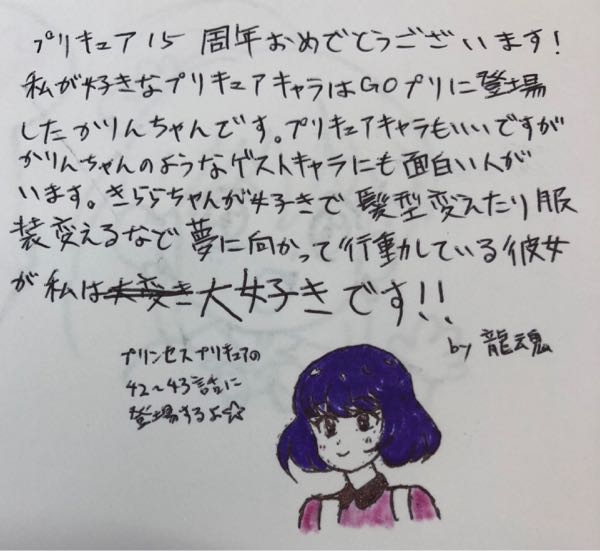 プリキュア15 周年おめでとうございます!
私が好きなプリキュアキャラはGOプリに登場
したかりんちゃんです。プリキュアキャラもいいですが
かりんちゃんのようなゲストキャラにも面白い人が
います。きららちゃんが好きで髪型変えたり服
装変えるなど夢に向かって行動している彼女
が私は大好きです!!
by 龍魂
プリンセスプリキュアの
42~43話に
登場するよ☆